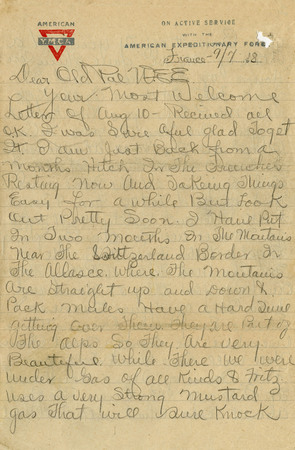 AMERICAN
YMCA
ON ACTIVE SERVICE
WITH THE
AMERICAN EXPEDITIONARY FORCE
France 9/7 18
Dear Old Pal
Your Most Welcome
Letter of Aug 10 - Recived all
OK. I was Sure aful glad to get
It I am Just Back From a
months Hitch In The Trenches
Resting Now And Takeing Things
Easy For a while But Look
Out Pretty Soon I Have Put
In Two Months In The Montains
Near The Switzerland Border In
The Allasce. Where The Montains
Are Straight up and Down &
Pack Mules Have a Hard Time
getting over Them. They are But of
The Alps So They Are very
Beautiful while There we were
under Gas of all Kinds & Fritz
uses a very Strong Mustard
gas That will Sure Knock